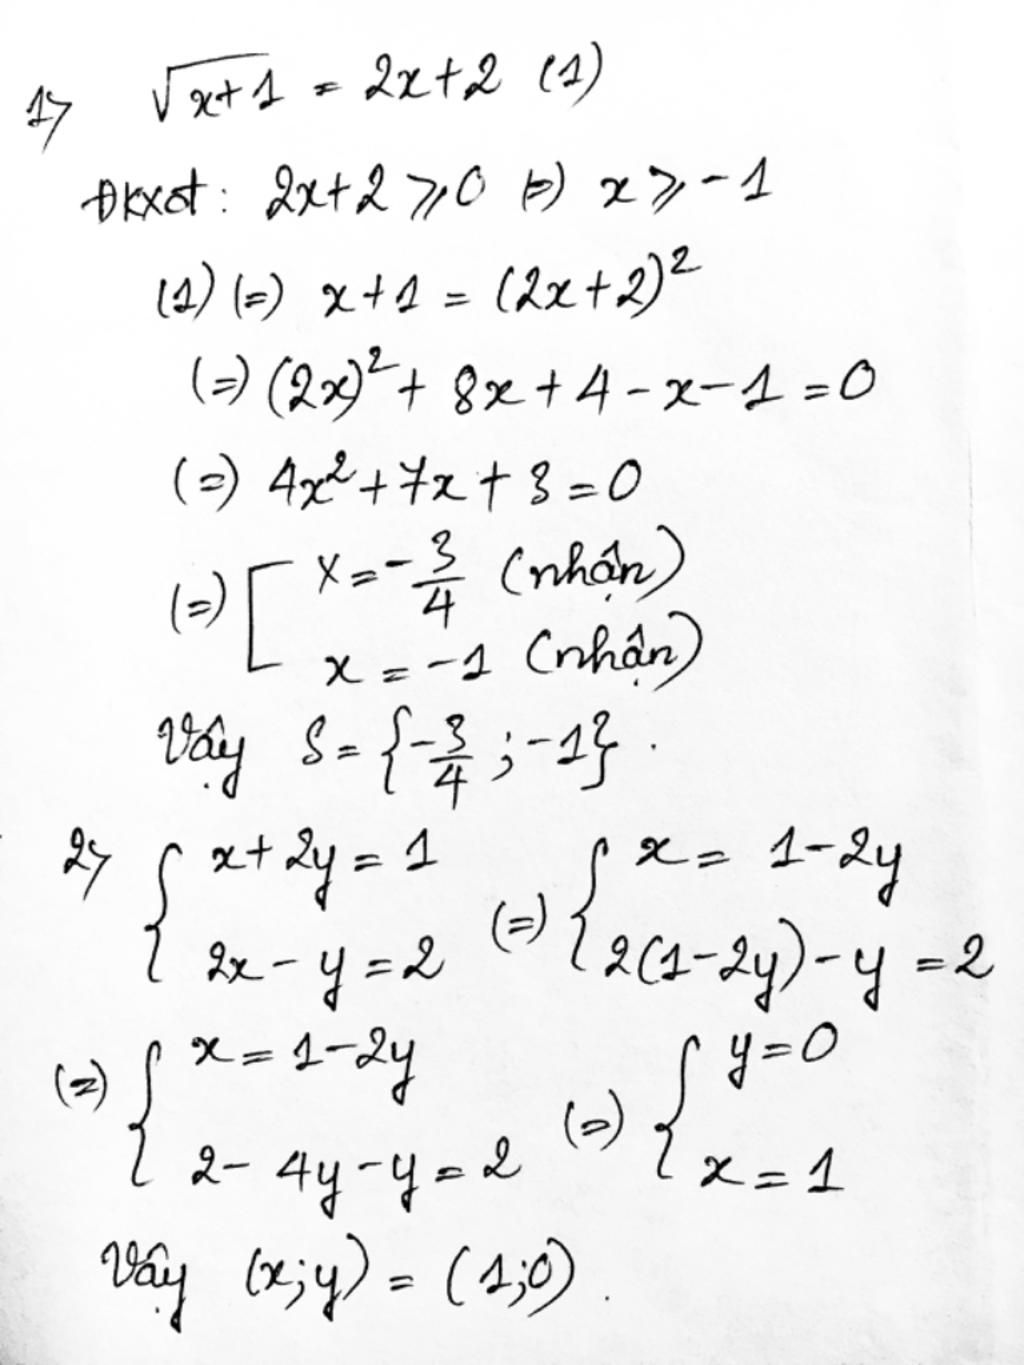 1) √(x+1) = 2x+2 (1)
ĐKXĐ: 2x+2 ⩾ 0 (=) x ⩾ -1
(1) (=) x+1 = (2x+2)²
(=) (2x)² + 8x + 4 - x - 1 = 0
(=) 4x² + 7x + 3 = 0
(=) [ x = -3/4 (nhận)
x = -1 (nhận)
Vậy S = {-3/4 ; -1} .
2) { x + 2y = 1 (=) { x = 1-2y
2x - y = 2 2(1-2y) - y = 2
(=) { x = 1-2y (=) { y = 0
2 - 4y - y = 2 x = 1
Vậy (x;y) = (1;0) .